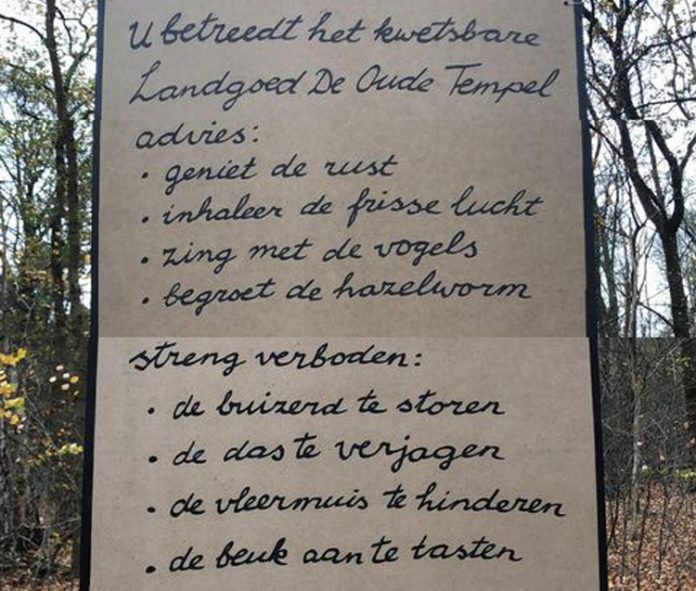 U betreedt het kwetsbare
Landgoed De Oude Tempel
advies:
• geniet de rust
• inhaleer de frisse lucht
• zing met de vogels
• begroet de hazelworm
streng verboden:
• de buizerd te storen
• de das te verjagen
• de vleermuis te hinderen
• de beuk aan te tasten